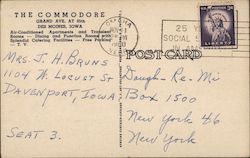 THE COMMODORE
GRAND AVE. AT 35th
DES MOINES, IOWA
Air-Conditioned Apartments and Transient
Rooms — Dining and Function Rooms
Catering Facilities — Free Parking
T. V.
1960
25
SOCIAL
POST CARD
Mrs. J. H. Bruns
1104 W. Locust St
Davenport, Iowa
Seat 3.
Dough-Re-Mi
Box 1500
New York 46
New York